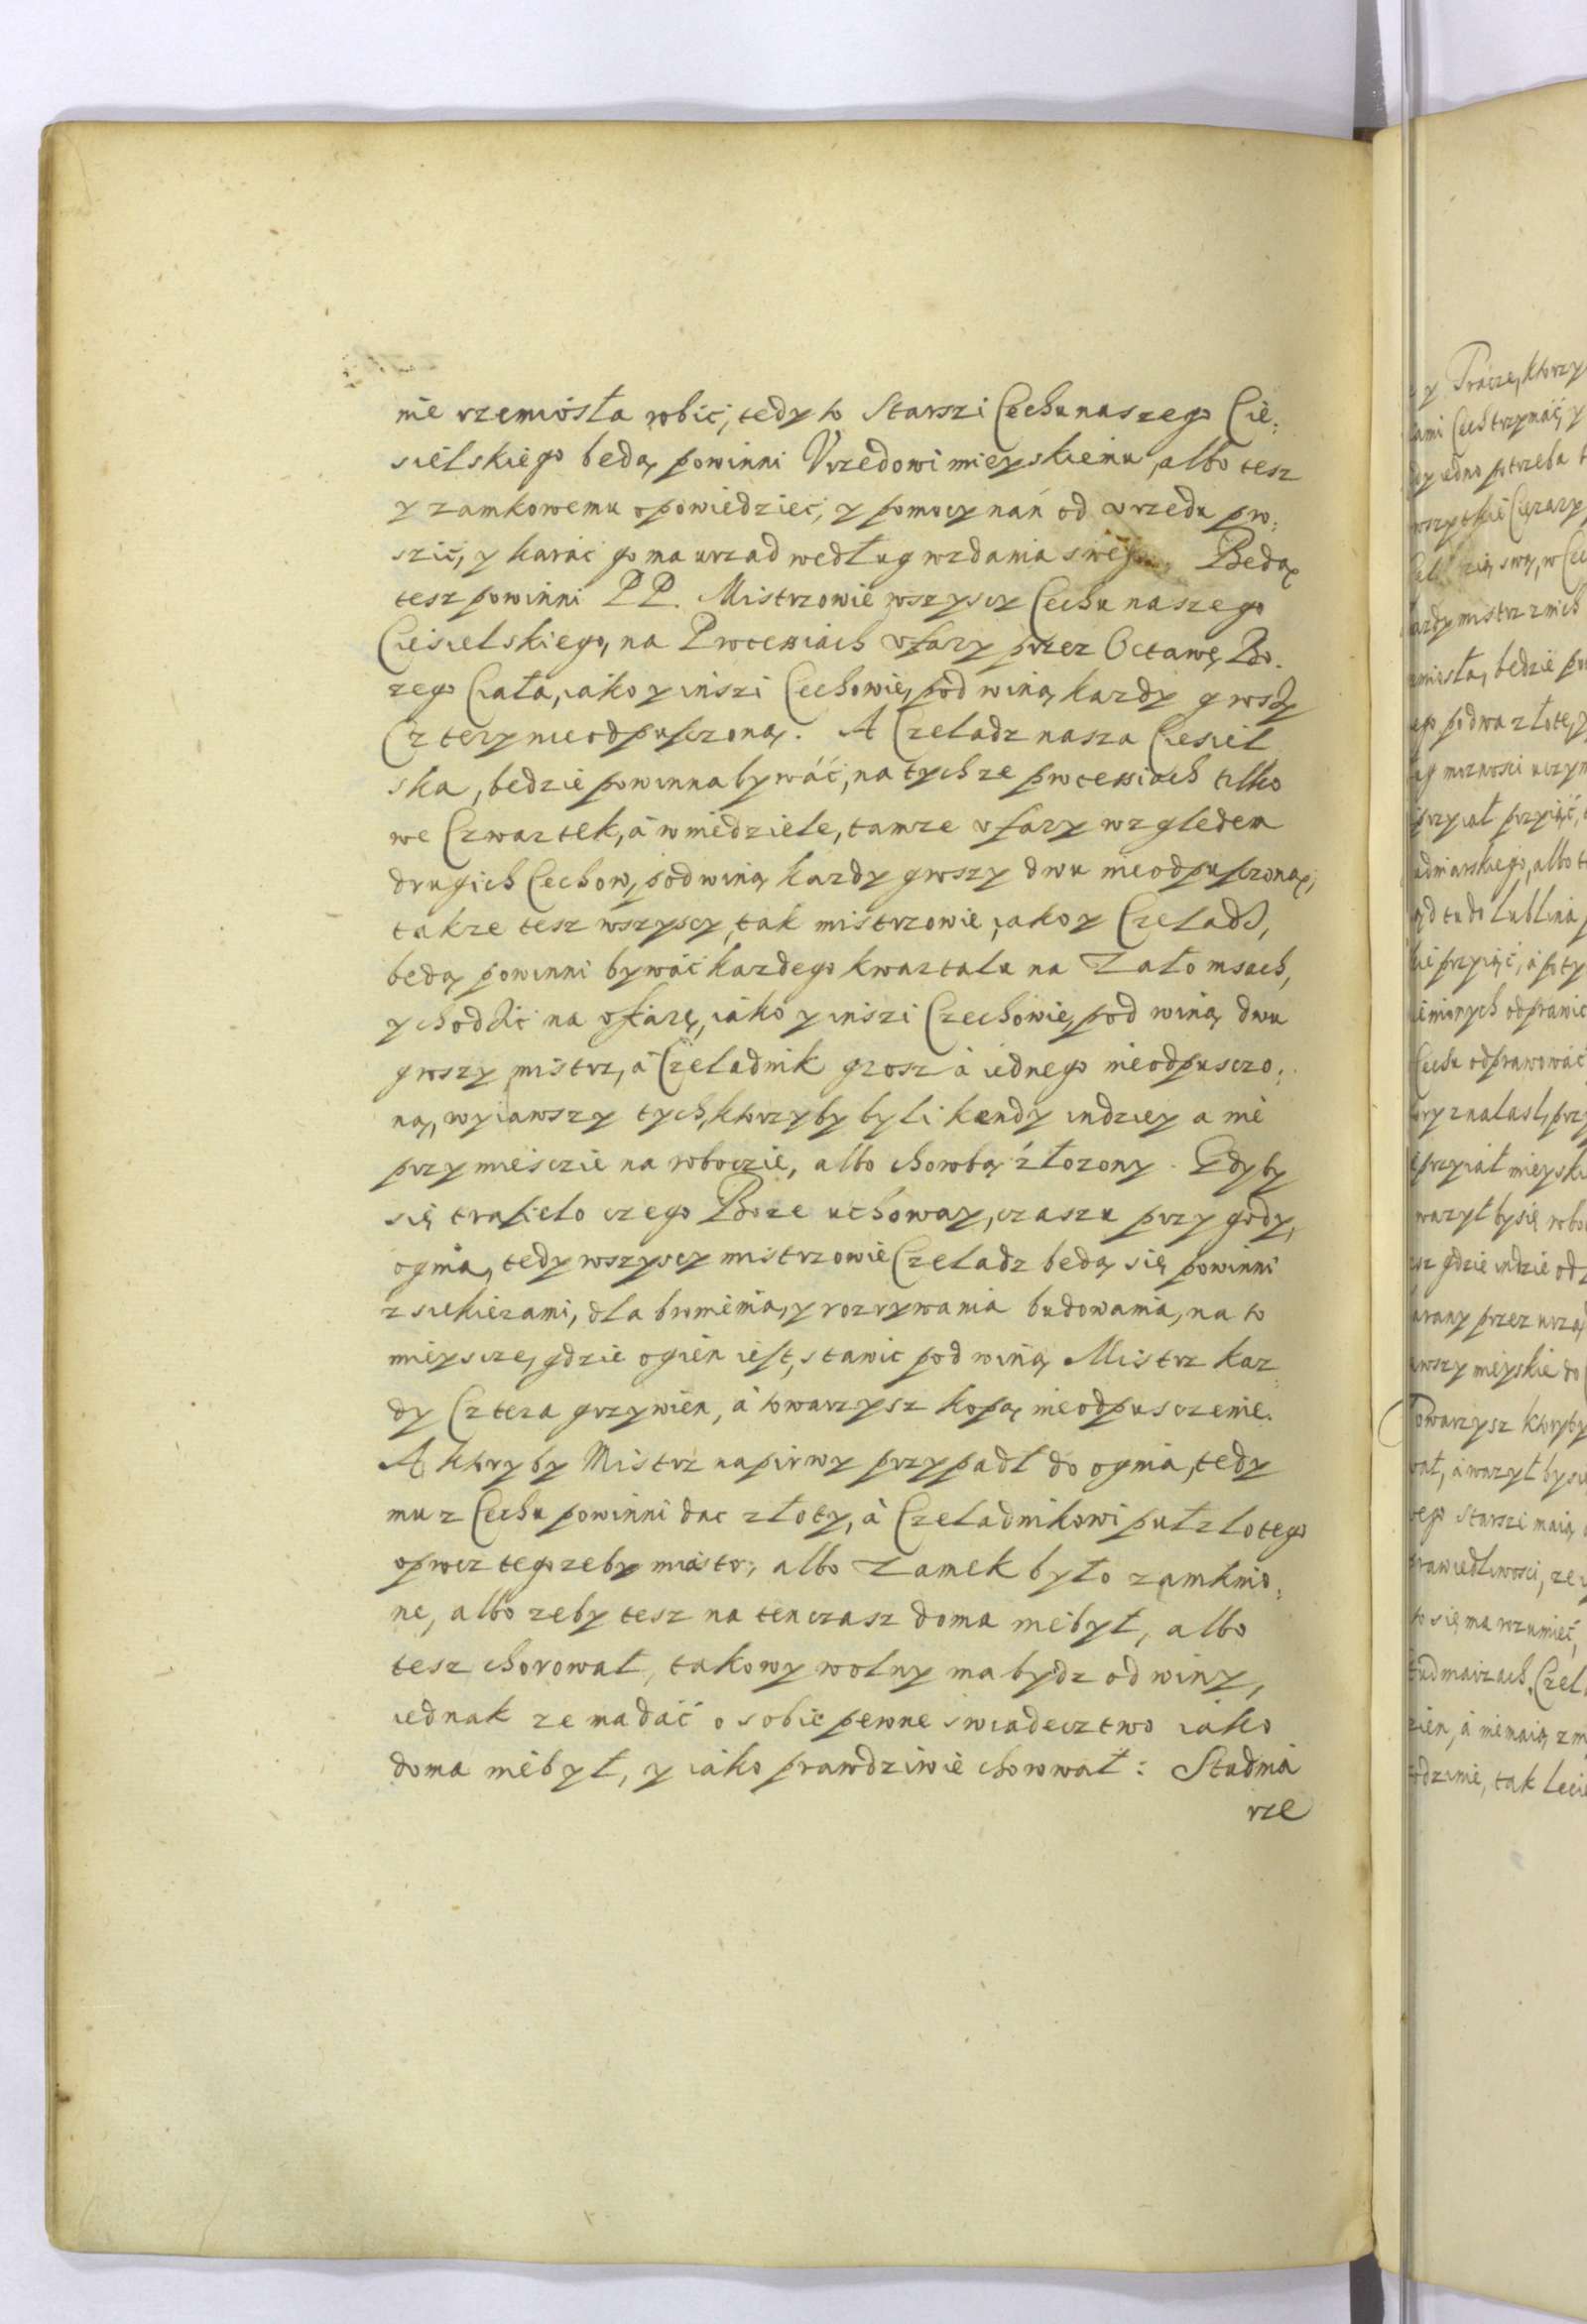 nie rzemiosła robić, tedy to Starszi Cechu naszego Cie:
sielskiego będą powinni Vrzedowi mieyskiemu, albo tesz
y zamkowemu opowiedzieć, y pomocy nań od vrzedu pro:
szić, y karać go ma urzad według wzdania swego Będą
tesz powinni PP. Mistrzowie wszyscy Cechu naszego
Ciesielskiego, na Processiach v fary przez Octawę Bo.
zego Ciała, iako y inszi Cechowie, pod winą kazdy groszy
Cztery nieodpusczoną. A Czeladz nasza Ciesiel
ska, bedzie powinna bywáć, na tychze processiach tilko
we Czwartek, á w niedziele, tamze v fary względem
drugich Cechow, pod winą kazdy groszy dwu nieodpusczoną,
takze tesz wszyscy, tak mistrzowie, iako y Czeladz,
bedą powinni bywáć kazdego kwartalu na Zało msach,
y chodzić na ofiarę, iako y inszi Czechowie, pod winą dwu
groszy mistrz, á Czeladnik grosz á iednego nieodpusczo:
ną, wyiawszy tych, ktorzyby byli kendy indziey a nie
przy miesczie na roboczie, albo chorobą złozony. Gdyby
się trafieło czego Boze uchoway, czaszu przy gody,
ognia, tedy wszyscy mistrzowie Czeladz bedą się powinni
z siekierami, dla bronienia, y rozrywania budowania, na to
mieysczę, gdzie ogień iest, stawic pod winą Mistrz kaz
dy Cztera grzywien, á towarzysz kopą nieodpusczenie.
A ktoryby Mistrz napirwy przypadł do ognia, tedy
mu z Cechu powinni dac złoty, á Czeladnikowi puł złotego
oprocz tego zeby miasto, albo Zamek było zamknio:
ne, albo zeby tesz na tenczasz doma niebył, albo
tesz chorował, takowy wolny ma bydz od winy,
iednak ze ma dáć o sobie pewne swiadecztwo iako
doma niebył, y iako prawdziwie chorował: Studnia
rze